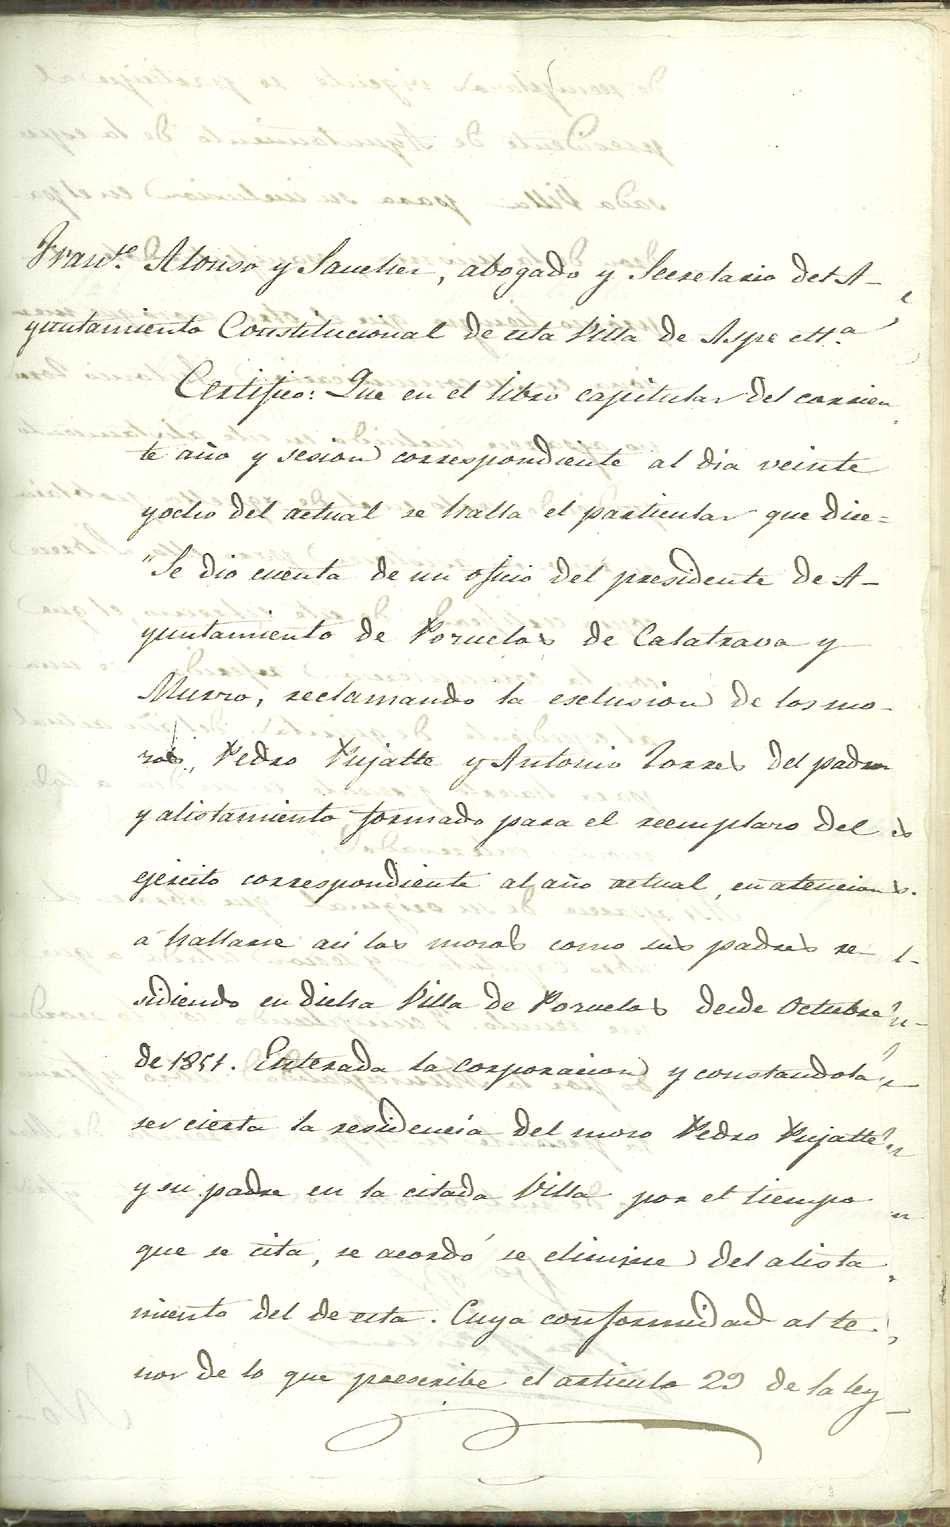 Fran.co Alonso y Sanchez, abogado y Secretario del A-
yuntamiento Constitucional de esta Villa de Aspe ett.a
Certifico: Que en el libro capitular del corrien
te año y sesion correspondiente al dia veinte
yocho del actual se halla el particular que dice=
"Se dio cuenta de un oficio del presidente de A-
yuntamiento de Pozuelos de Calatrava y
Murzo, reclamando la esclusion de los mo-
zos, Pedro Pujalte y Antonio Torres del padron
y alistamiento formado para el reemplazo del
ejercito correspondiente al año actual, en atencion
á hallarse asi los mozos como sus padres re-
sidiendo en dicha Villa de Pozuelos desde Octubre
de 1851. Enterada la corporacion y constandola
ser cierta la residencia del mozo Pedro Pujalte
y su padre en la citada Villa por el tiempo
que se cita, se acordó se elimine del alista
miento del de esta. Cuya conformidad al te-
nor de lo que prescribe el articulo 29 de la ley